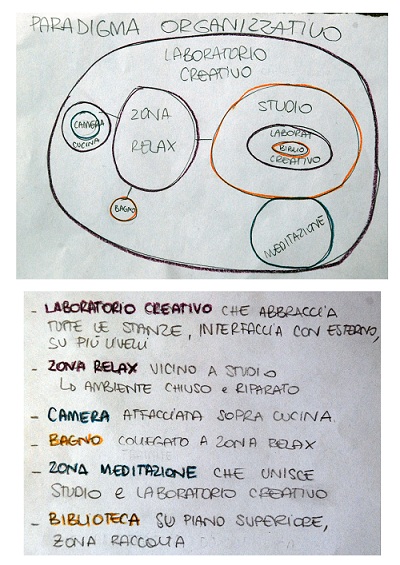 PARADIGMA ORGANIZZATIVO
LABORATORIO
CREATIVO
ZONA
RELAX
CAMERA
CUCINA
BAGNO
STUDIO
LABORAT
BIBLIO
CREATIVO
MEDITAZIONE
- LABORATORIO CREATIVO CHE ABBRACCIA
TUTTE LE STANZE, INTERFACCIA CON ESTERNO,
SU PIÙ LIVELLI
- ZONA RELAX VICINO A STUDIO
LO AMBIENTE CHIUSO e RIPARATO
- CAMERA AFFACCIATA SOPRA CUCINA
- BAGNO COLLEGATO A ZONA RELAX
- ZONA MEDITAZIONE CHE UNISCE
STUDIO e LABORATORIO CREATIVO
- BIBLIOTECA SU PIANO SUPERIORE,
ZONA RACCOLTA